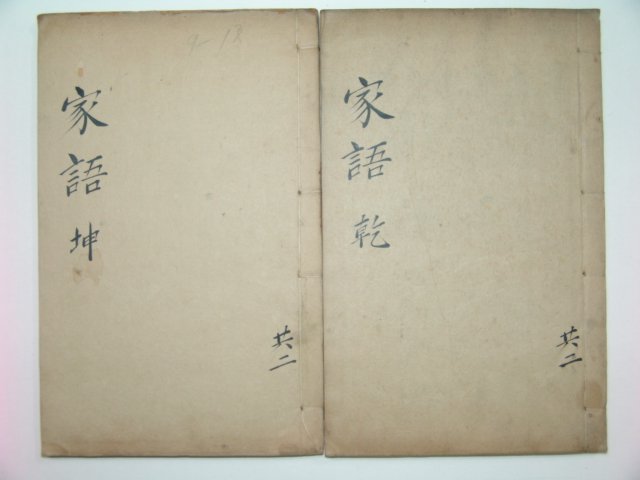 家語 乾
共二
家語 坤
共二
9-13